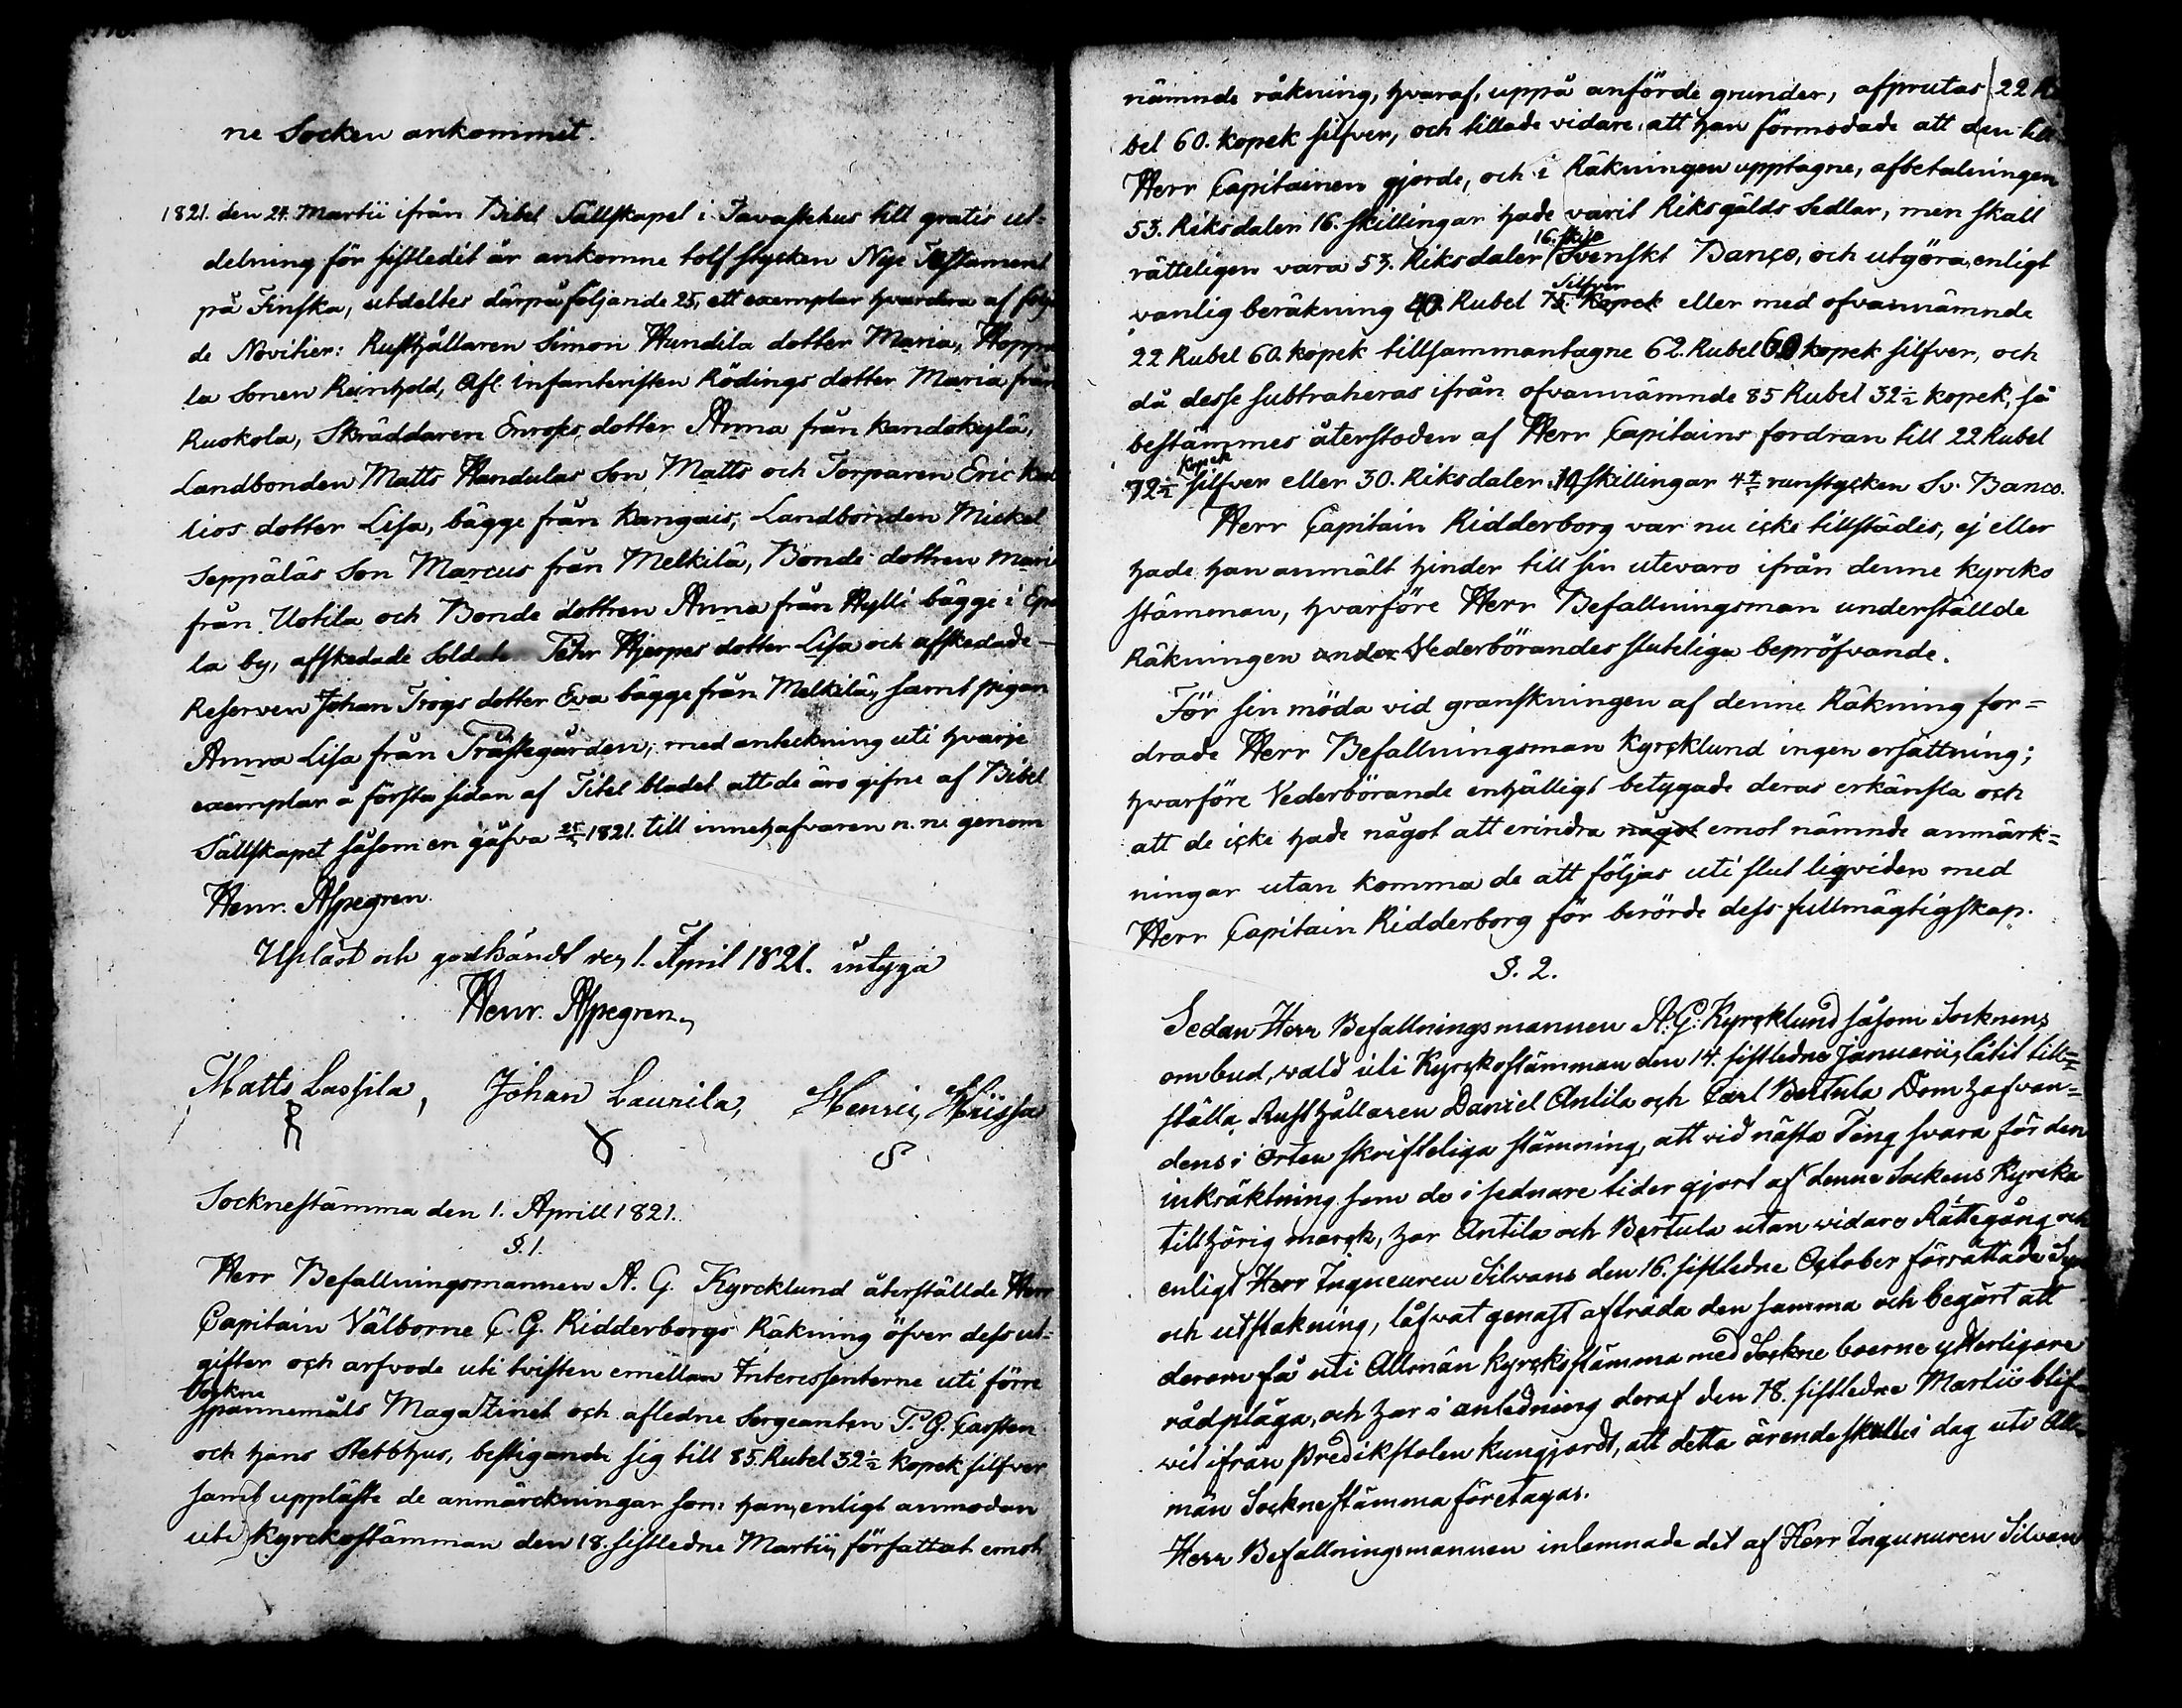 ne Socken ankommit.
1821. den 24. Martii ifrån Bibel Sällskapet i Tavastehus till gratis ut-
delning för sistledit år ankomne tolf stycken Nye Testament
på Finska, utdeltes därpå följande 25, ett exemplar hvardera af följa
de Novitier: Rusthållaren Simon Hundila dotter Maria, Hoppa
la Sonen Reinhold, Afl. Infanteristen Rödings dotter Maria från
Ruokola, Skräddaren Enrofs dotter Anna från Kandokylä,
Landbonden Matts Handulas Son Matts och Torparen Eric Kal
lios dotter Lisa, bägge från Kangais, Landbonden Mickel
Seppäläs Son Marcus från Melkilä, Bonde dottren Mari
från Uotila och Bonde dottren Anna från Hylli bägge i Epa
la by, afskedade Soldaten Pehr Hjerpes dotter Lisa och afskedade
Reserven Johan Trogs dotter Eva bägge från Melkilä, samt pigan
Anna Lisa från Präste gården, med anteckning uti hvarje
exemplar å första sidan af Titel bladet att de äro gifne af Bibel
Sällskapet såsom en gåfva 25/3 1821. till innehafvaren n.n. genom
Henr. Aspegren.
Upläst och godkändt den 1. April 1821. intyga
Henr. Aspegren,
Matts Lassila, Johan Laurila, Henric Krissa
Socknestämma den 1. Aprill 1821.
§. 1.
Herr Befallningsmannen A. G. Kyrcklund återställde Herr
Capitain Välborne C. G. Ridderborgs Räkning öfver dess ut-
gifter och arfvode uti tvisten emellan Interessenterne uti förre
Sockne
Spannemåls Magazinet och afledne Sergeanten P. G. Carsten
och hans Sterbhus, bestigande sig till 85. Rubel 32½ kopek silfver
samt uppläste de anmärckningar som han, enligt anmodan
uti Kyrckostämman den 18. sistledne Martii, författat emot
nämnde räkning, hvaraf, uppå anförde grunder, afprutas 22 Ru
bel 60. kopek silfver, och tillade vidare, att han förmodade att den till
Herr Capitainen gjorde, och i Räkningen upptagne, afbetalningen
53. Riksdaler 16. skillingar hade varit Riksgälds Sedlar, men skall
16. sk
rätteligen vara 53. Riksdaler Svenskt Banco, och utgöra, enligt
Silfver
vanlig beräkning 40 Rubel 75. Kopek eller med ofvannämnde
22 Rubel 60. kopek tillsammantagne 62. Rubel 60 kopek silfver, och
då desse subtraheras ifrån ofvannämnde 85 Rubel 32½ kopek, så
bestämmes återstoden af Herr Capitains fordran till 22 Rubel
kopek
72½ silfver eller 30. Riksdaler 10 skillingar 4 4/5 runstycken Sv. Banco.
Herr Capitain Ridderborg var nu icke tillstädes, ej eller
hade han anmält hinder till sin utevaro ifrån denne kyrcko
stämman, hvarföre Herr Befallningsman underställde
Räkningen under Vederbörandes slutliga bepröfvande.
För sin möda vid granskningen af denne Räkning for=
drade Herr Befallningsman Kyrcklund ingen ersättning;
hvarföre Vederbörande enhälligt betygade deras erkänsla och
att de icke hade något att erindra något emot nämnde anmärk=
ningar utan komma de att följas uti slut liqviden med
Herr Capitain Ridderborg för berörde dess fullmägtigskap.
§. 2.
Sedan Herr Befallningsmannen A. G. Kyrcklund såsom Socknens
ombud, wald uti Kyrckostämman den 14. sistledne Januarii, låtit till=
ställa Rusthållaren Daniel Antila och Carl Bertula Domhafvan=
dens i Orten skrifteliga stämning, att vid nästa Ting svara för den
inkräktning som de i sednare tider gjort af denne Sockens Kyrcka
tillhörig marck, har Antila och Bertula utan widare Rättegång och
enligt Herr Ingeneuren Silvans den 16. sistledne October förrättade Syn
och utstakning, låfvat genast afträda den samma och begärt att
derom få uti Allmän Kyrckostämma med Sockne boerne ytterligare
rådpläga, och har i anledning deraf den 18. sistledne Martii blif-
vit ifrån Predikstolen kungjordt, att detta ärende skulle i dag uti All-
män Sockne stämma företagas.
Herr Befallningsmannen inlemnade det af Herr Ingenuren Silvan